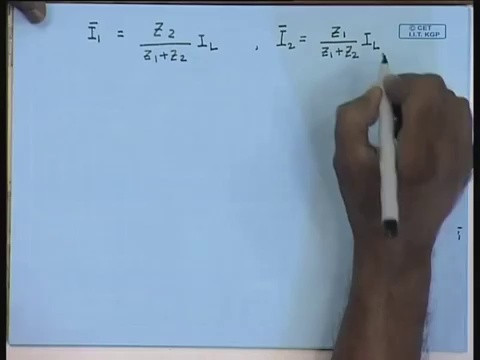 Ī₁ = Z₂ / (Z₁+Z₂) I_L , Ī₂ = Z₁ / (Z₁+Z₂) I_L
© CET
I.I.T. KGP